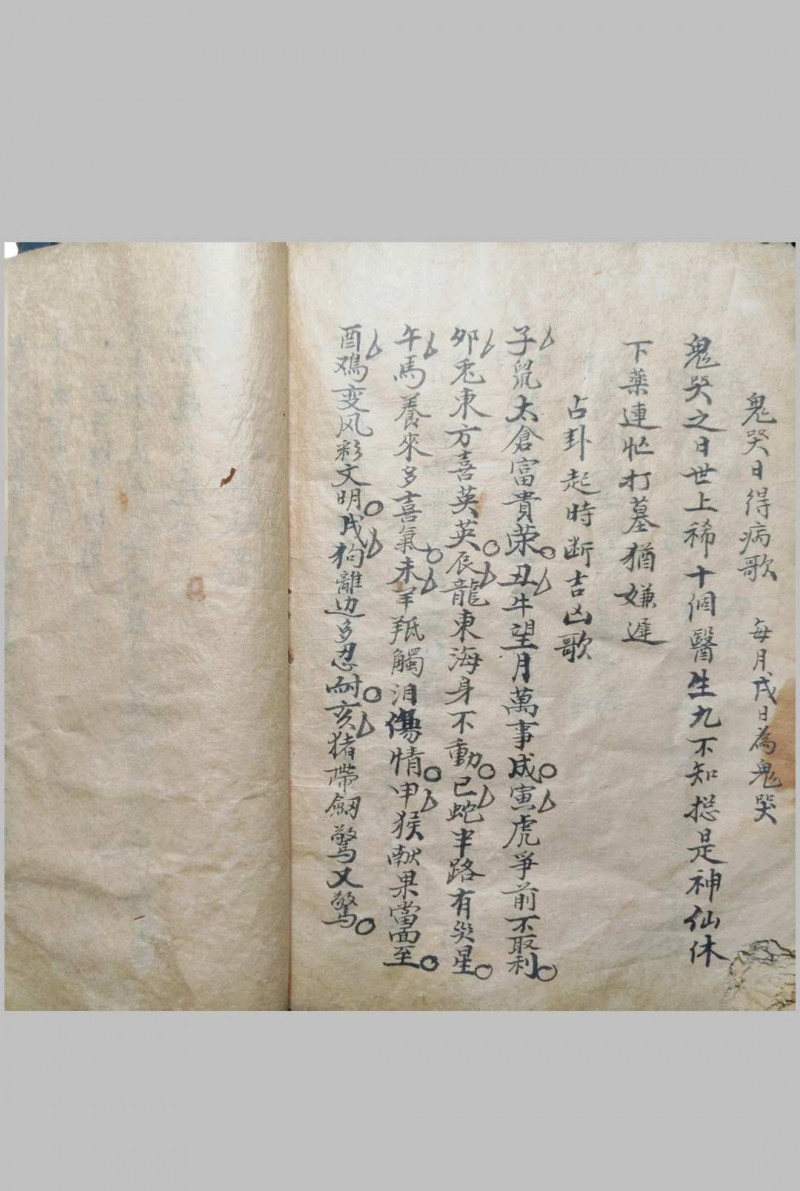 鬼哭日得病歌 每月戌日為鬼哭
鬼哭之日世上稀十個醫生九不知揔是神仙休
下藥連忙打墓猶嫌遲
占卦起時斷吉凶歌
子鼠太倉富貴荣○丑牛望月萬事成○寅虎爭前不取利○
卯兎東方喜英英○辰龍東海身不動○巳蛇半路有災星○
午馬養來多喜氣○未羊羝觸泪傷情○申猴献果當面至○
酉鳮变风彩文明○戌狗離边多忍耐○亥猪帶劒驚又驚○